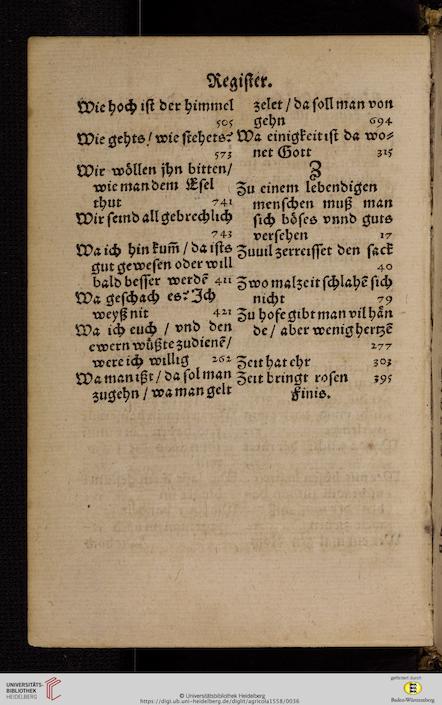 Register.
Wie hoch ist der himmel
505
Wie gehts / wie stehets?
573
Wir wöllen jhn bitten /
wie man dem Esel
thut 741
Wir seind all gebrechlich
743
Wa ich hin kum̃ / da ists
gut gewesen oder will
bald besser werdē 411
Wa geschach es? Ich
weyß nit 421
Wa ich euch / vnd den
ewern wüßte zudienē /
were ich willig 262
Wa man ißt / da sol man
zugehn / wa man gelt
zelet / da soll man von
gehn 694
Wa einigkeit ist da wo⸗
net Gott 315
Z
Zu einem lebendigen
menschen muß man
sich böses vnnd guts
versehen 17
Zuuil zerreisset den sack
40
Zwo malzeit schlahē sich
nicht 79
Zu hofe gibt man vil hän
de / aber wenig hertzē
277
Zeit hat ehr 303
Zeit bringt rosen 395
Finis.
UNIVERSITÄTS-
BIBLIOTHEK
HEIDELBERG
© Universitätsbibliothek Heidelberg
https://digi.ub.uni-heidelberg.de/diglit/agricola1558/0036
gefördert durch
Baden-Württemberg